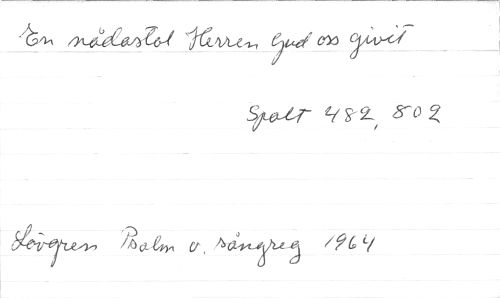 En nådastol Herren Gud oss givit
Spalt 482, 802
Lövgren Psalm o. sångreg 1964